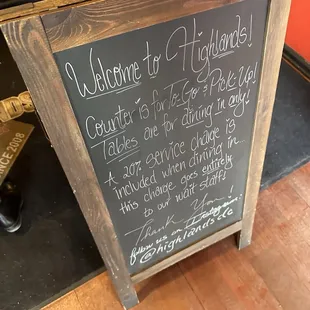 Welcome to Highlands!
Counter is for To-Go & Pick-Up!
Tables are for dining in only!
A 20% service charge is
included when dining in.
this charge goes entirely
to our wait staff!
Thank You!
follow us on Instagram!
@highlandsdc
NCE 2008